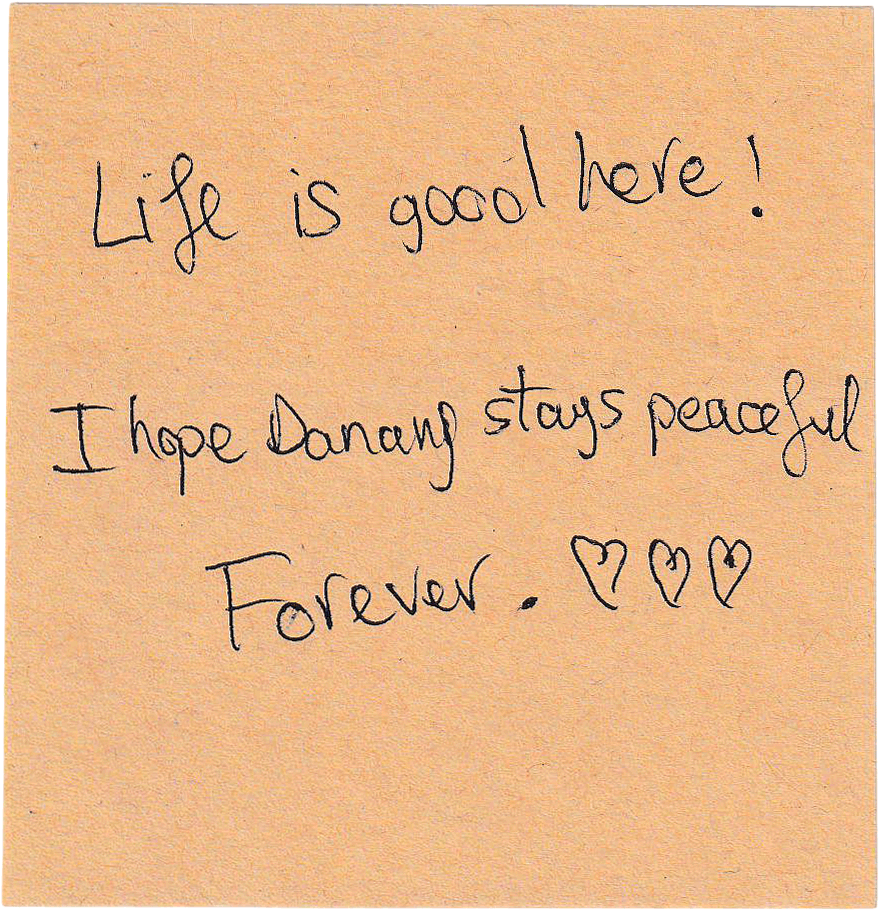 Life is good here!
I hope Danang stays peaceful
Forever. ♡♡♡